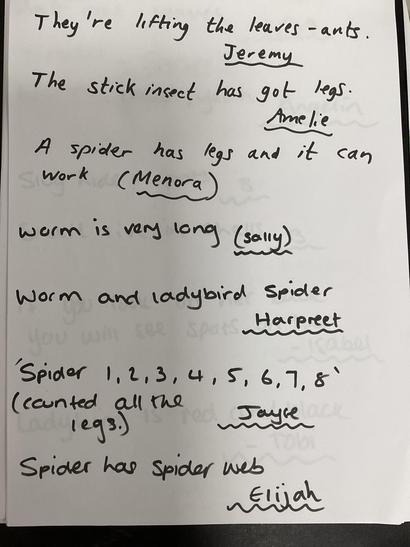 They're lifting the leaves - ants.
Jeremy
The stick insect has got legs.
Amelie
A spider has legs and it can
work (Menora)
worm is very long (sally)
Worm and ladybird Spider
Harpreet
'Spider 1, 2, 3, 4, 5, 6, 7, 8'
(counted all the
legs.) Jayce
Spider has Spider web
Elijah